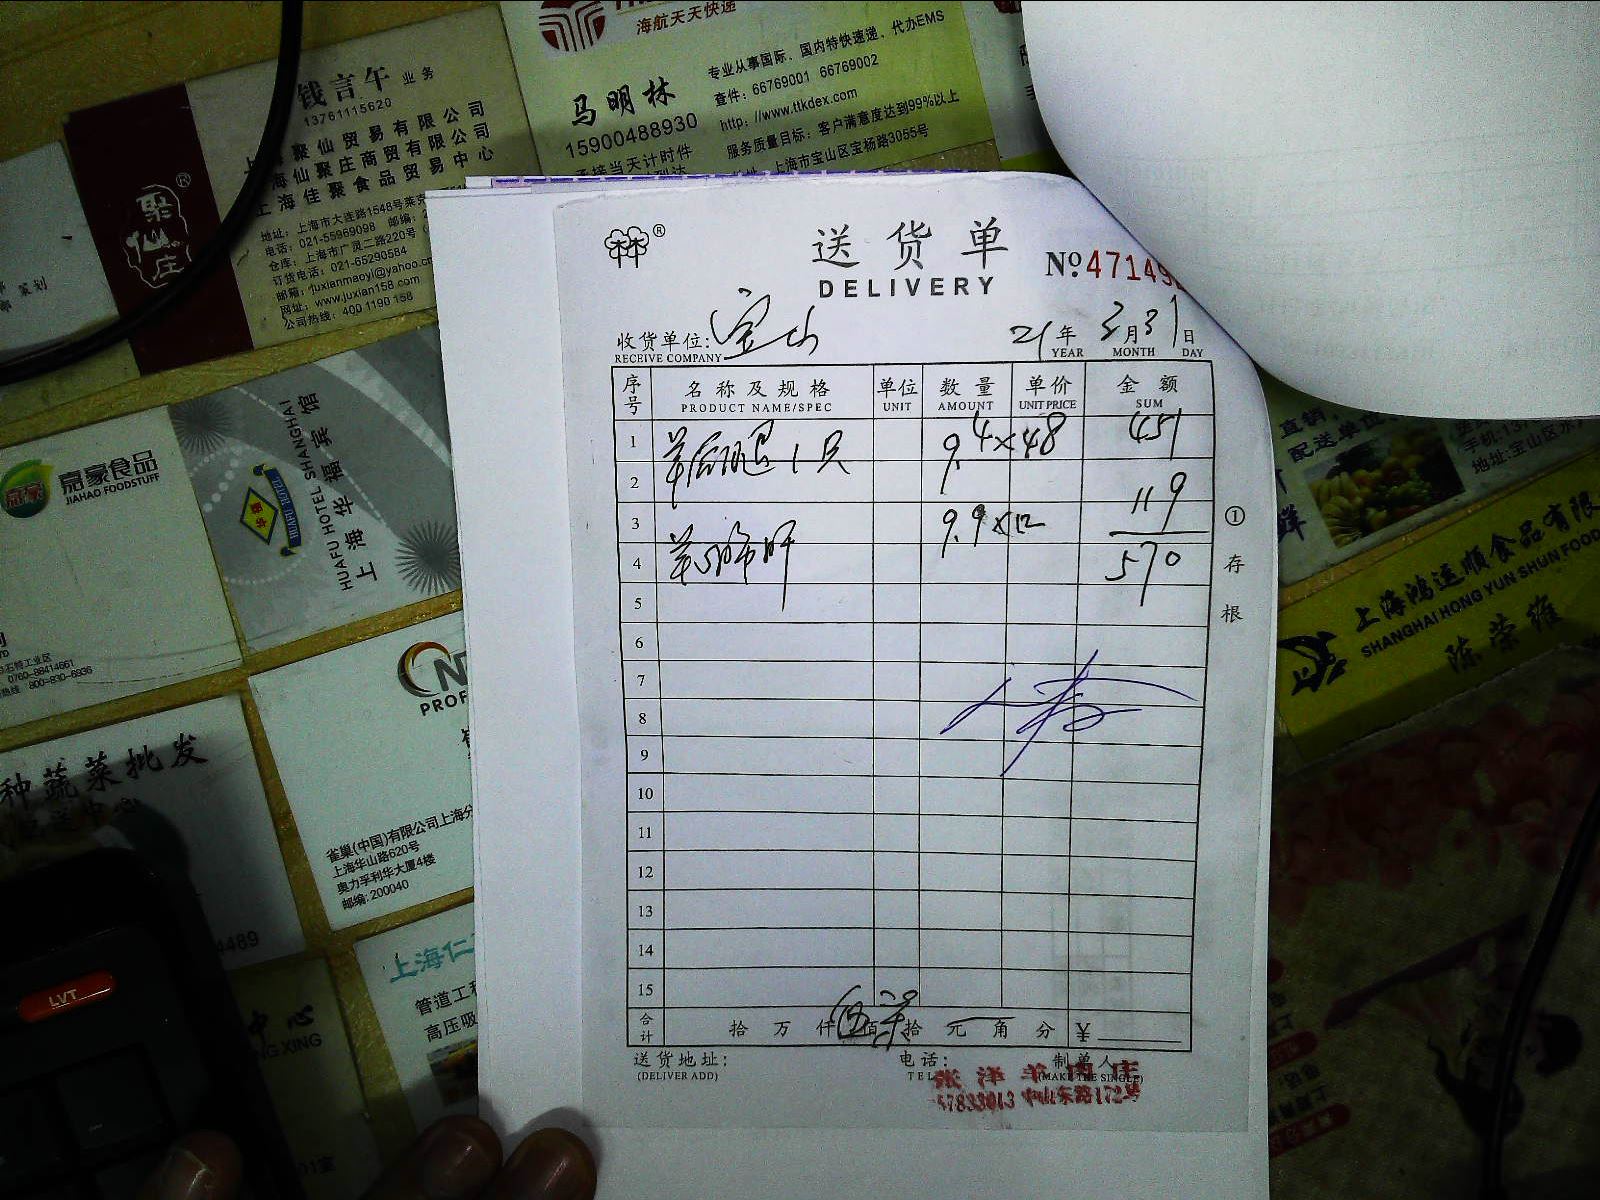 海航天天快递
钱言午 业务
13761115620
上海聚仙贸易有限公司
上海仙聚庄商贸有限公司
上海佳聚食品贸易中心
地址: 上海市大连路1548号
电话: 021-55969098 邮编:
仓库: 上海市广灵二路220号
订货电话: 021-65290584
邮箱: juxianmaoyi@yahoo.
网址: www.juxian158.com
公司热线: 400 1190 158
聚仙庄®
马明林
15900488930
承接当天计时件
专业从事国际、国内特快速递、代办EMS
查件: 66769001 66769002
http: //www.ttkdex.com
服务质量目标: 客户满意度达到99%以上
地址: 上海市宝山区宝杨路3055号
®
送货单
DELIVERY
№ 47149
收货单位: 宝山
RECEIVE COMPANY
21年 3月 31日
YEAR MONTH DAY
序号 名称及规格 单位 数量 单价 金额
PRODUCT NAME/SPEC UNIT AMOUNT UNIT PRICE SUM
1 羊后腿1只 9.4×48 451
2 119
3 9.9×12
4 570
5
6
7
8
9
10
11
12
13
14
15
合计 拾 万 仟 伍佰 拾 元 角 分 ¥
送货地址:
(DELIVER ADD)
电话:
TEL
制单人
(MAKE THE SINGLE)
张泽羊肉店
57833013 中山东路172号
①存根
嘉豪食品
JIAHAO FOODSTUFF
0760-88414661
800-830-6936
上海华福宾馆
HUAFU HOTEL SHANGHAI
HUAFU HOTEL
PROF
雀巢(中国)有限公司上海分
上海华山路620号
奥力孚利华大厦4楼
邮编: 200040
种蔬菜批发
配送中心
4489
LVT
中心
NG XING
上海仁
管道工
高压吸
01室
直销,
配送单位
鲜
手机:137
地址:宝山区水产
上海鸿运顺食品有限
SHANGHAI HONG YUN SHUN FOOD
陈荣雍